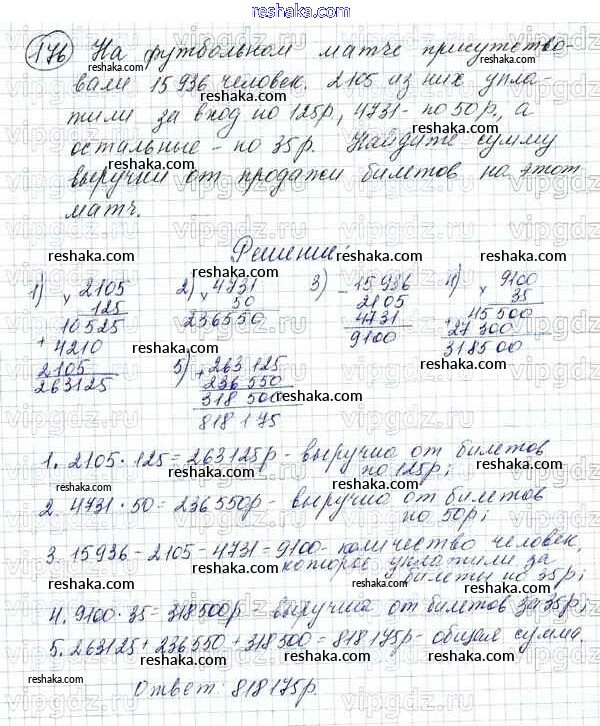 reshaka.com
176 На футбольном матче присутство-
вали 15 936 человек. 2105 из них упла-
тили за вход по 125р, 4731 - по 50р, а
остальные - по 35р. Найдите сумму
выручки от продажи билетов на этот
матч.
Решение:
1) × 2105
125
10525
+ 4210
2105
263125
2) × 4731
50
236550
3) - 15936
2105
4731
9100
4) × 9100
35
45500
+ 27300
318500
5) + 263125
236550
318500
818175
1. 2105 · 125 = 263125р - выручка от билетов
по 125р;
2. 4731 · 50 = 236550р - выручка от билетов
по 50р;
3. 15936 - 2105 - 4731 = 9100 - количество человек,
которое уплатили за
билеты по 35р;
4. 9100 · 35 = 318500р - выручка от билетов за 35р;
5. 263125 + 236550 + 318500 = 818175р - общая сумма
Ответ: 818175р.